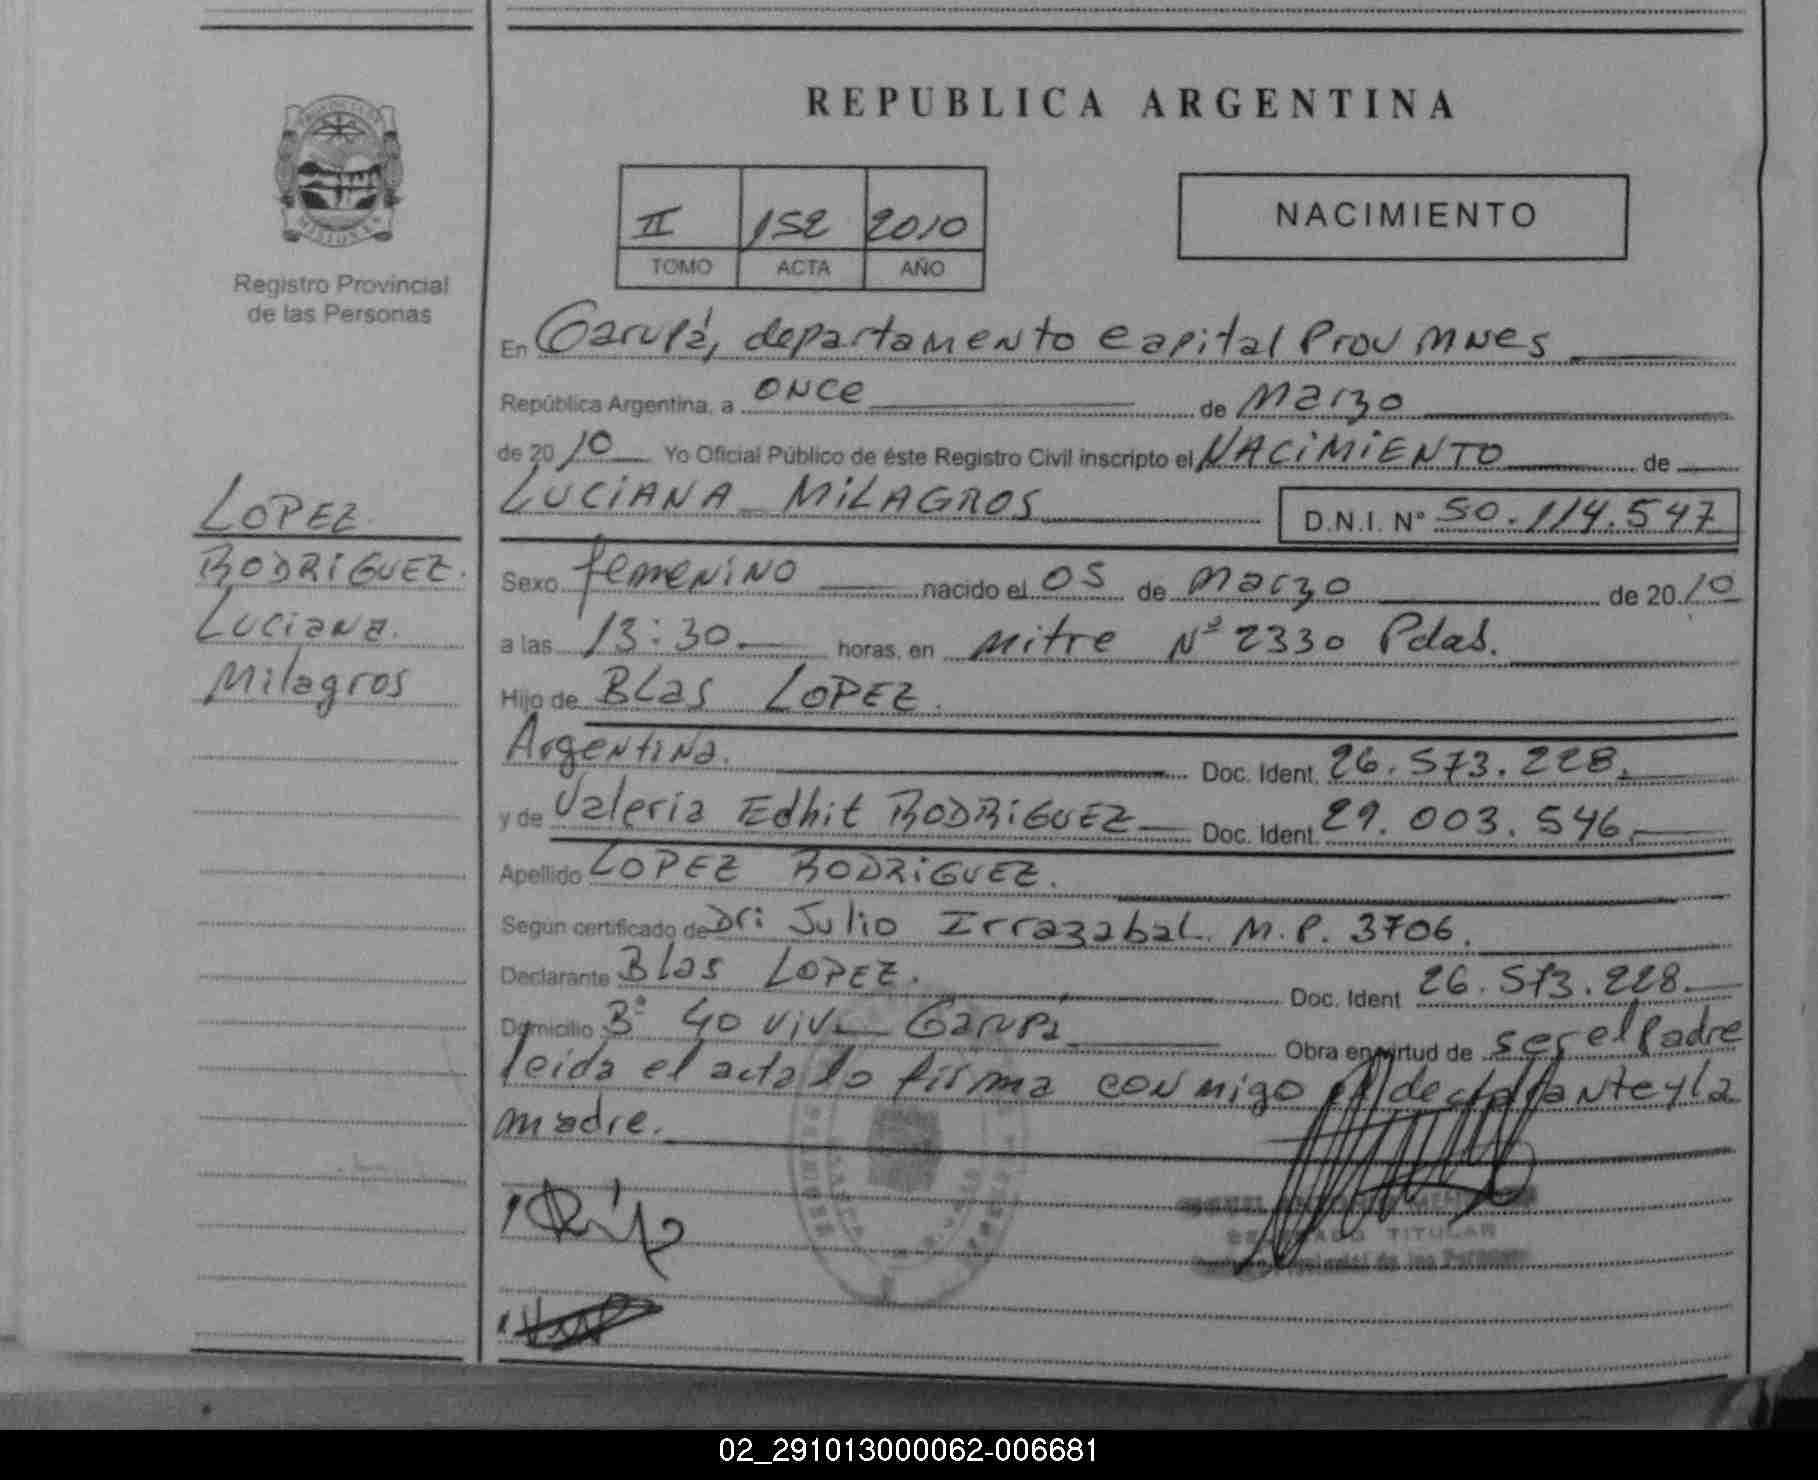 REPUBLICA ARGENTINA
PROVINCIA
MISIONES
Registro Provincial
de las Personas
II 152 2010
TOMO ACTA AÑO
NACIMIENTO
En Garupá, departamento Capital Prov Mnes
República Argentina, a once de Marzo
de 2010 Yo Oficial Público de éste Registro Civil inscripto el NACIMIENTO de
LUCIANA MILAGROS D.N.I. N° 50.114.547
LOPEZ
RODRIGUEZ.
Luciana.
Milagros
Sexo femenino nacido el 05 de Marzo de 2010
a las 13:30 horas, en Mitre Nº 2330 Pdas.
Hijo de BLas LOPEZ.
Argentina. Doc. Ident. 26.573.228.
y de Valeria Edhit RODRIGUEZ Doc. Ident. 29.003.546.
Apellido LOPEZ RODRIGUEZ.
Según certificado de Dr: Julio Irrazabal. M.P. 3706.
Declarante Blas LOPEZ. Doc. Ident 26.573.228.
Domicilio Bº 40 viv. Garupa Obra en virtud de ser el Padre
leida el acta lo firma conmigo el declarante y la
madre.
TITULAR
Provincial de las Personas
02_291013000062-006681